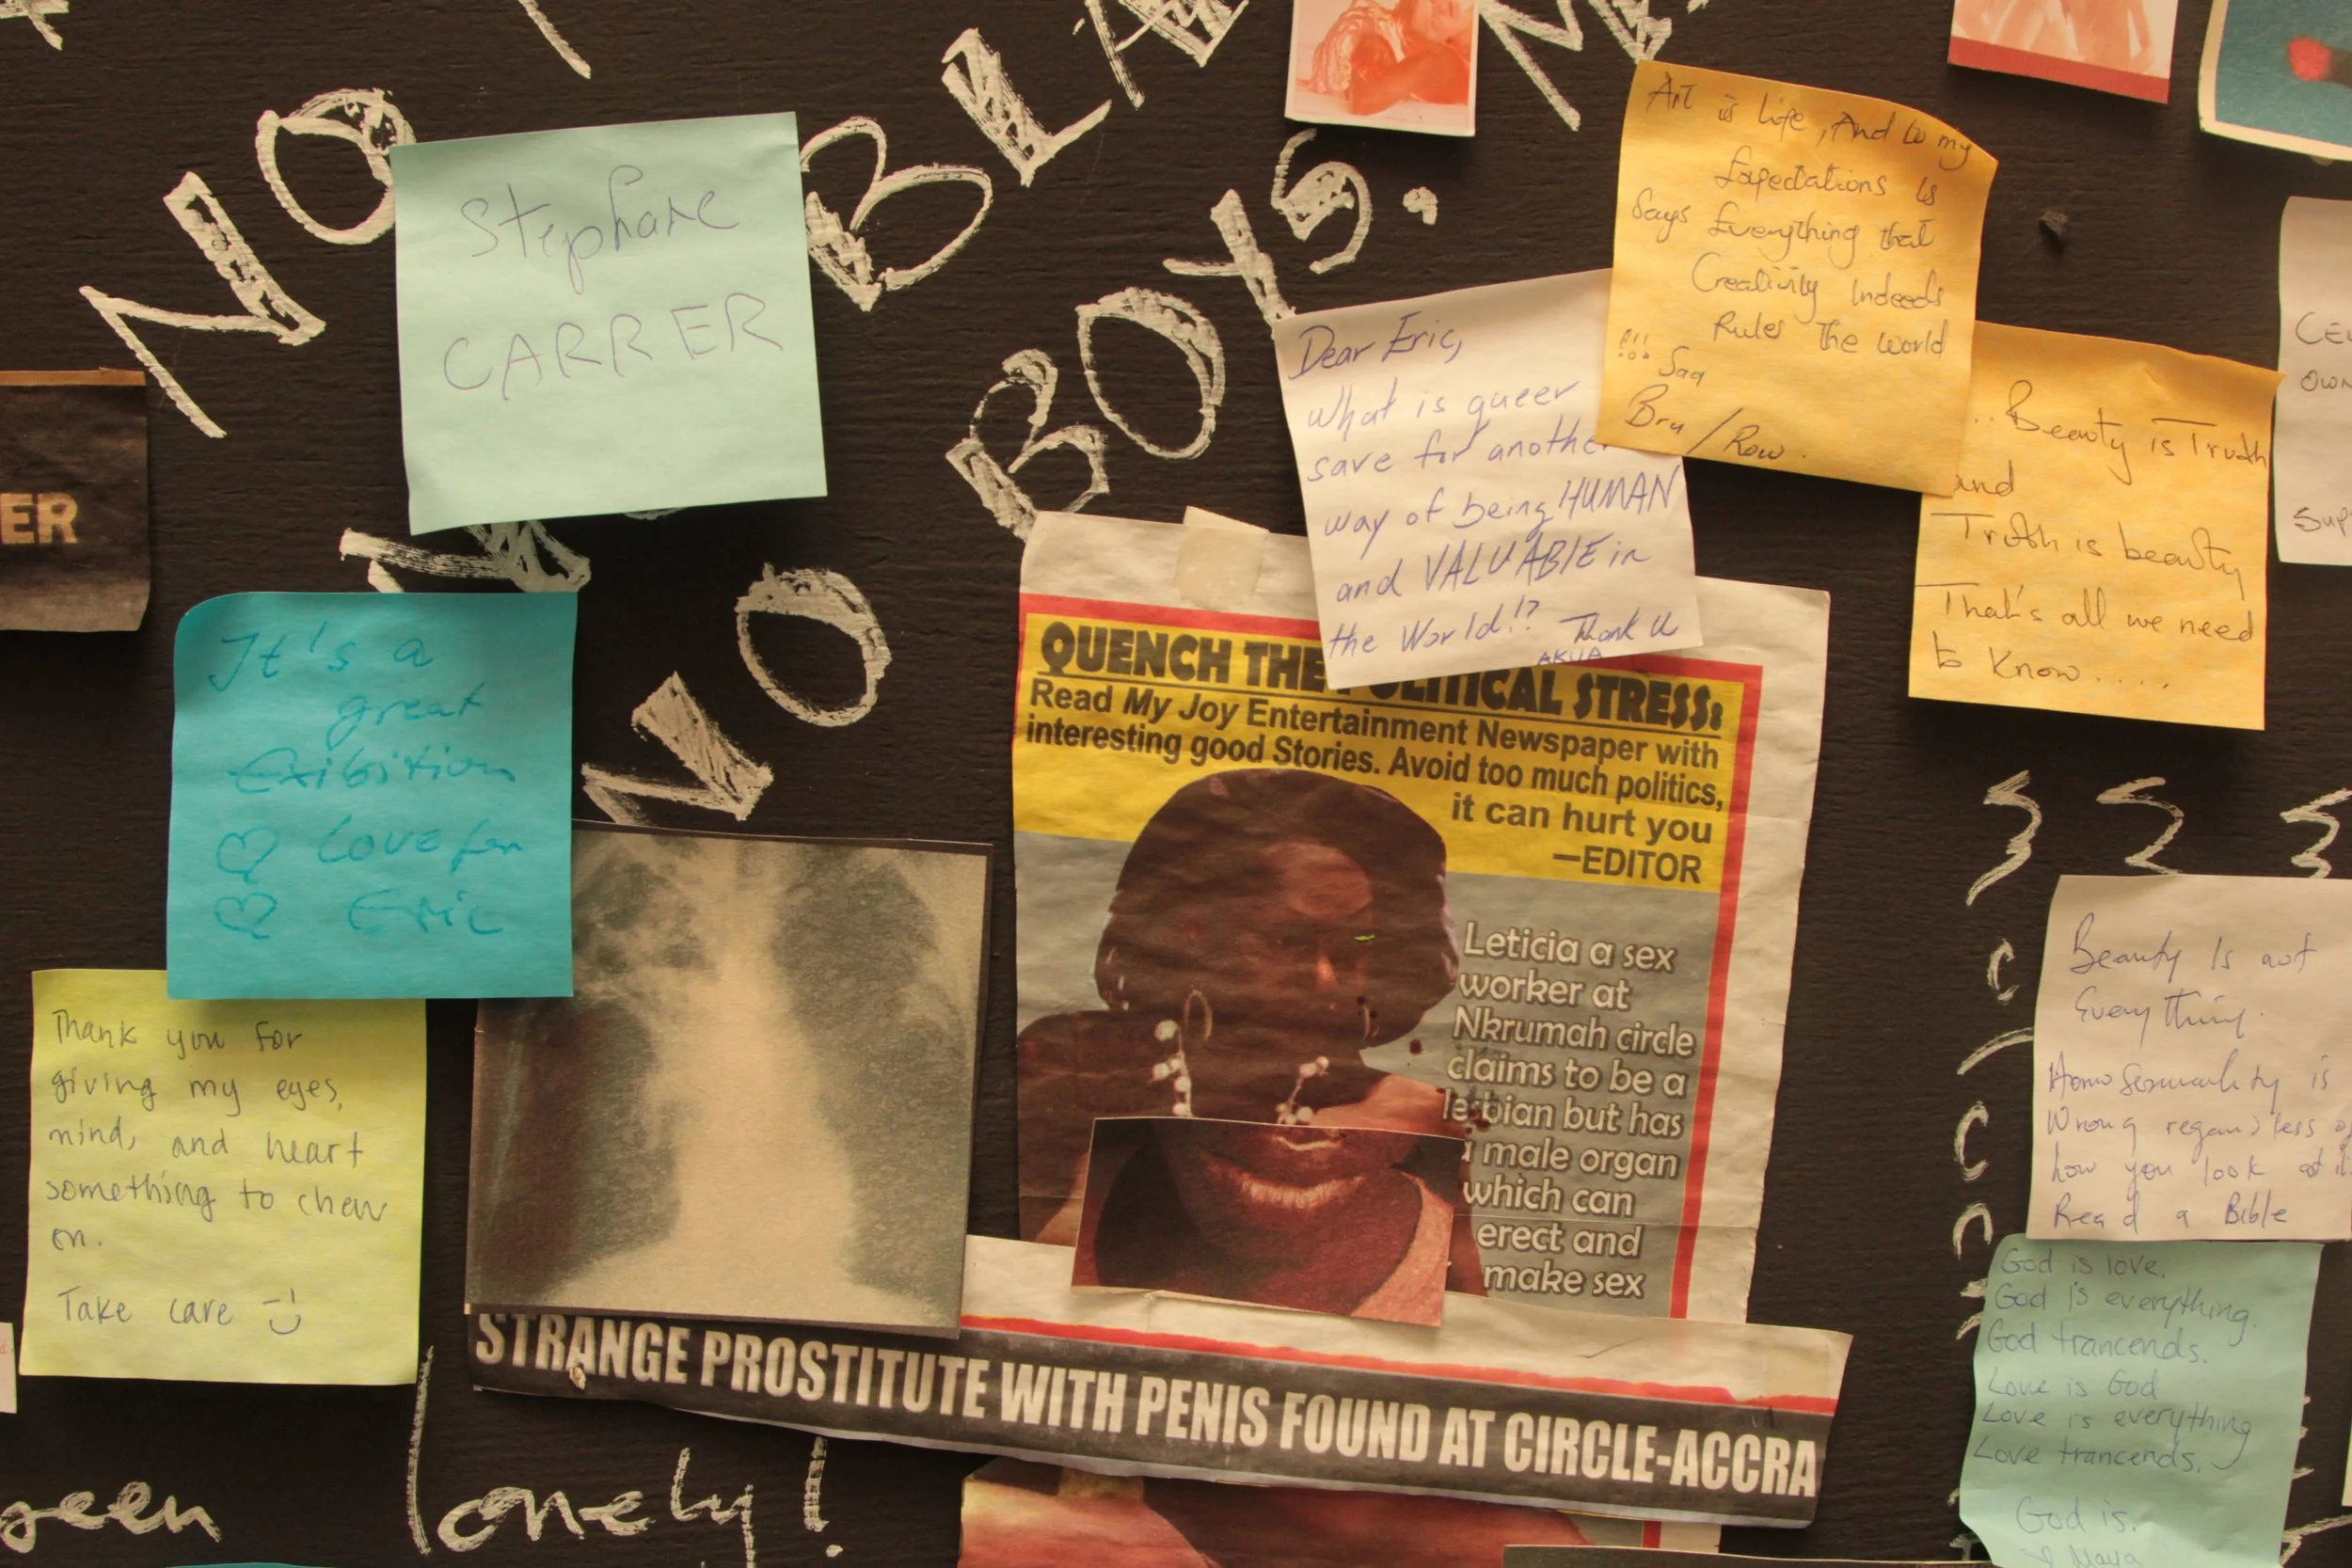 NO
BLA
BOYS.
NO
Stephane
CARRER
ER
It's a
great
Exibition
Love for
Eric
Thank you for
giving my eyes,
mind, and heart
something to chew
on.
Take care
Dear Eric,
What is queer
save for another
way of being HUMAN
and VALUABLE in
the World!? Thank U
AKUA
Art is Life, And to my
Expectations is
Says Everything that
Creativity Indeeds
Rules The world
!!! Saq
Bru / Row.
...Beauty is Truth
and
Truth is beauty
That's all we need
to know.....
QUENCH THE POLITICAL STRESS:
Read My Joy Entertainment Newspaper with
interesting good Stories. Avoid too much politics,
it can hurt you
—EDITOR
Leticia a sex
worker at
Nkrumah circle
claims to be a
lesbian but has
a male organ
which can
erect and
make sex
STRANGE PROSTITUTE WITH PENIS FOUND AT CIRCLE-ACCRA
Beauty Is not
Everything.
Homosexuality is
Wrong regardless of
how you look at it
Read a Bible
God is love.
God is everything.
God trancends.
Love is God
Love is everything
Love trancends.
God is.
Maya
OWN
SUP
seen lonely!